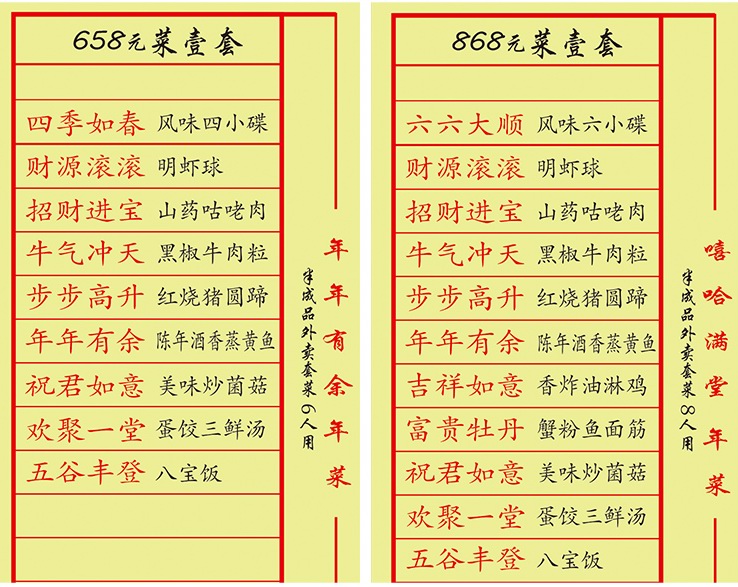 658元菜壹套
四季如春 风味四小碟
财源滚滚 明虾球
招财进宝 山药咕咾肉
牛气冲天 黑椒牛肉粒
步步高升 红烧猪圆蹄
年年有余 陈年酒香蒸黄鱼
祝君如意 美味炒菌菇
欢聚一堂 蛋饺三鲜汤
五谷丰登 八宝饭
半成品外卖套菜6人用
年年有余年菜
868元菜壹套
六六大顺 风味六小碟
财源滚滚 明虾球
招财进宝 山药咕咾肉
牛气冲天 黑椒牛肉粒
步步高升 红烧猪圆蹄
年年有余 陈年酒香蒸黄鱼
吉祥如意 香炸油淋鸡
富贵牡丹 蟹粉鱼面筋
祝君如意 美味炒菌菇
欢聚一堂 蛋饺三鲜汤
五谷丰登 八宝饭
半成品外卖套菜8人用
嘻哈满堂年菜